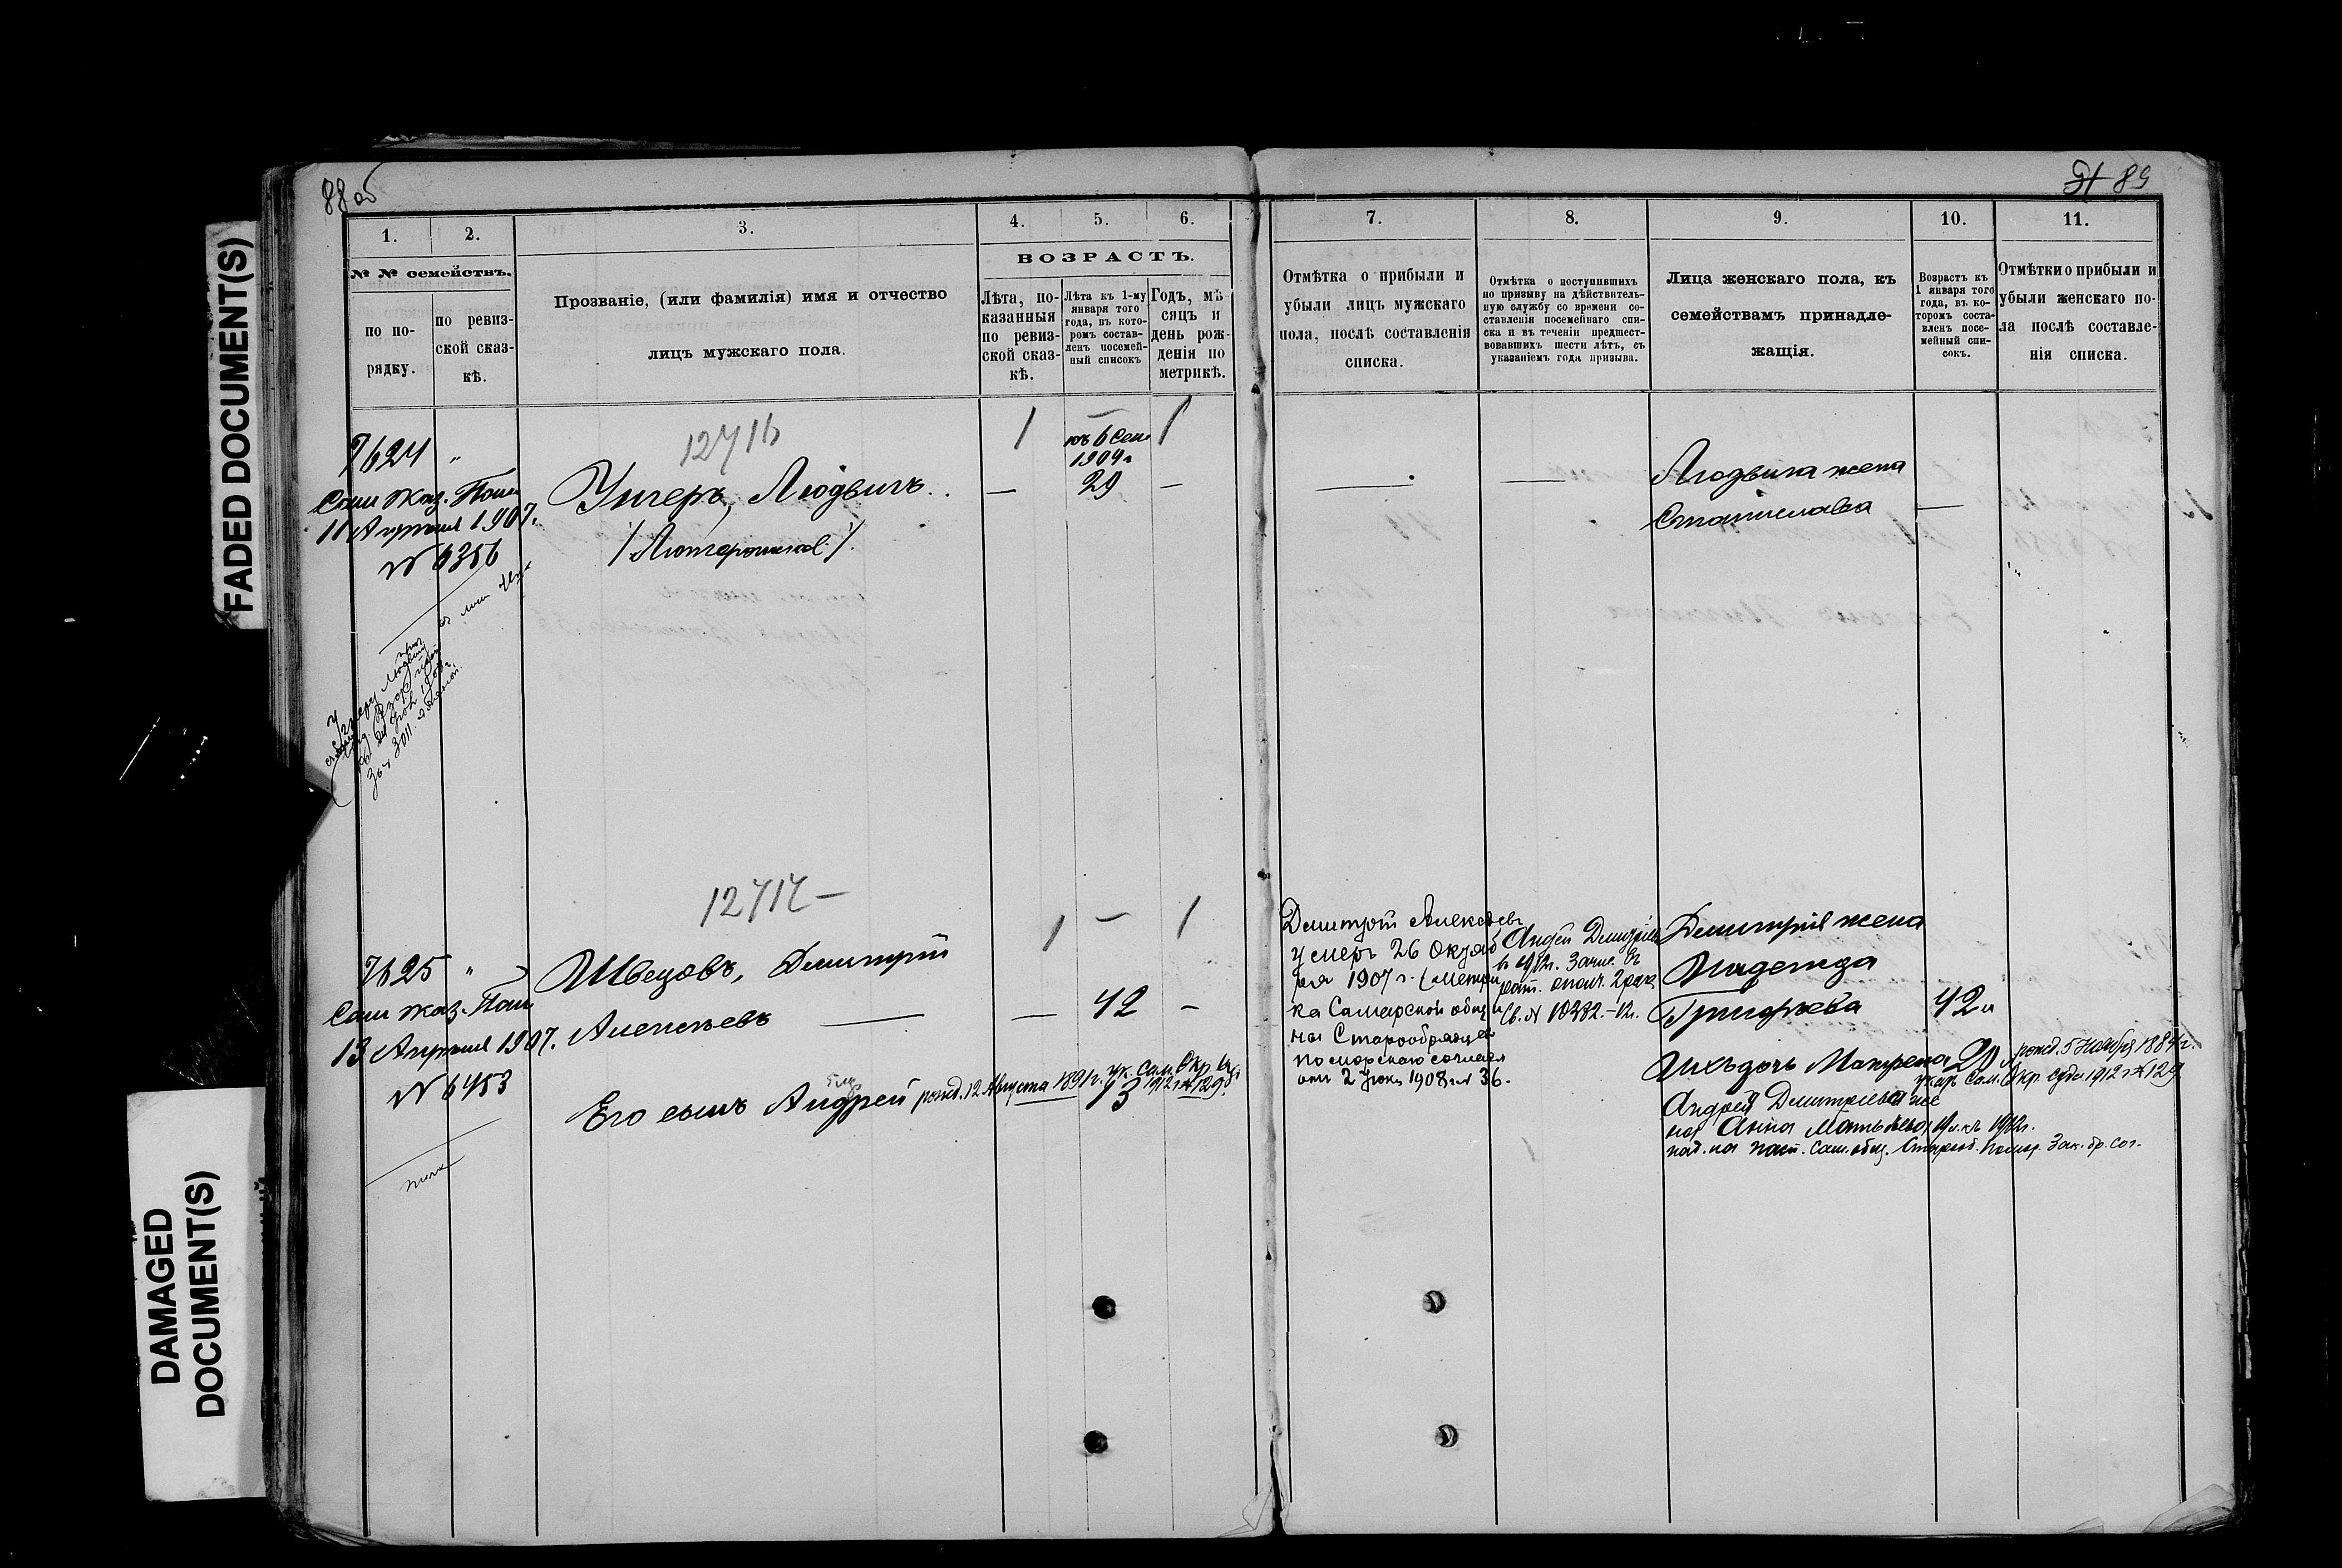 FADED DOCUMENT(S)
DAMAGED
DOCUMENT(S)
88 об
89
1.
2.
3.
4.
5.
6.
№ № семействъ.
по по-
рядку.
по ревиз-
ской сказ-
кѣ.
Прозваніе, (или фамилія) имя и отчество
лицъ мужскаго пола.
ВОЗРАСТЪ.
Лѣта, по-
казанныя
по ревиз-
ской сказ-
кѣ.
Лѣта къ 1-му
января того
года, въ кото-
ромъ состав-
ленъ посемей-
ный списокъ
Годъ, мѣ-
сяцъ и
день рож-
денія по
метрикѣ.
7.
8.
9.
10.
11.
Отмѣтка о прибыли и
убыли лицъ мужскаго
пола, послѣ составленія
списка.
Отмѣтка о поступившихъ
по призыву на дѣйствитель-
ную службу со времени со-
ставленія посемейнаго спи-
ска и въ теченіи предшест-
вовавшихъ шести лѣтъ, съ
указаніемъ года призыва.
Лица женскаго пола, къ
семействамъ принадле-
жащія.
Возрастъ къ
1 января того
года, въ ко-
торомъ соста-
вленъ посе-
мейный спи-
сокъ.
Отмѣтки о прибыли и
убыли женскаго по-
ла послѣ составле-
нія списка.
12716
7624 "
Сам Каз. Пал.
11 Апреля 1907.
№ 6356
Унгеръ, Людвигъ.
/Лютеранинъ/.
1
къ 6 Сен
1904 г
29
1
Людвига жена
Станислава
12717 —
7625 "
Сам Каз. Пал
13 Апреля 1907.
№ 6453
Швецовъ, Димитрій
Алексѣевъ
1 — 1
— 42 —
Его сынъ Андрей рожд. 12 Августа 1891 г. ук. Сам. Окр. Суда
13 1912 г № 129.
Дмитрій Алексѣевъ
умеръ 26 Октяб
ря 1907 г. (метри
ка Самарской общи
ны Старообрядцевъ
поморскаго согласія
отъ 2 1908 г № 36.
Андрей Дмитріевъ
въ 1912 г. зачис. въ
рат. опол. 2 разр.
Св. № 10382.-12 г.
Димитрія жена
Надежда
Григорьева
42 л
Ихъ дочь Матрена 20 л
рожд. 5 Ноября 1884 г.
указ Сам. Окр. Суда 1912 г № 129.
Андрея Дмитріева же
на Анна Матвѣева 19 л. къ 1912 г.
Сам. общ. Староб. Помор. Зак. бр. сог.